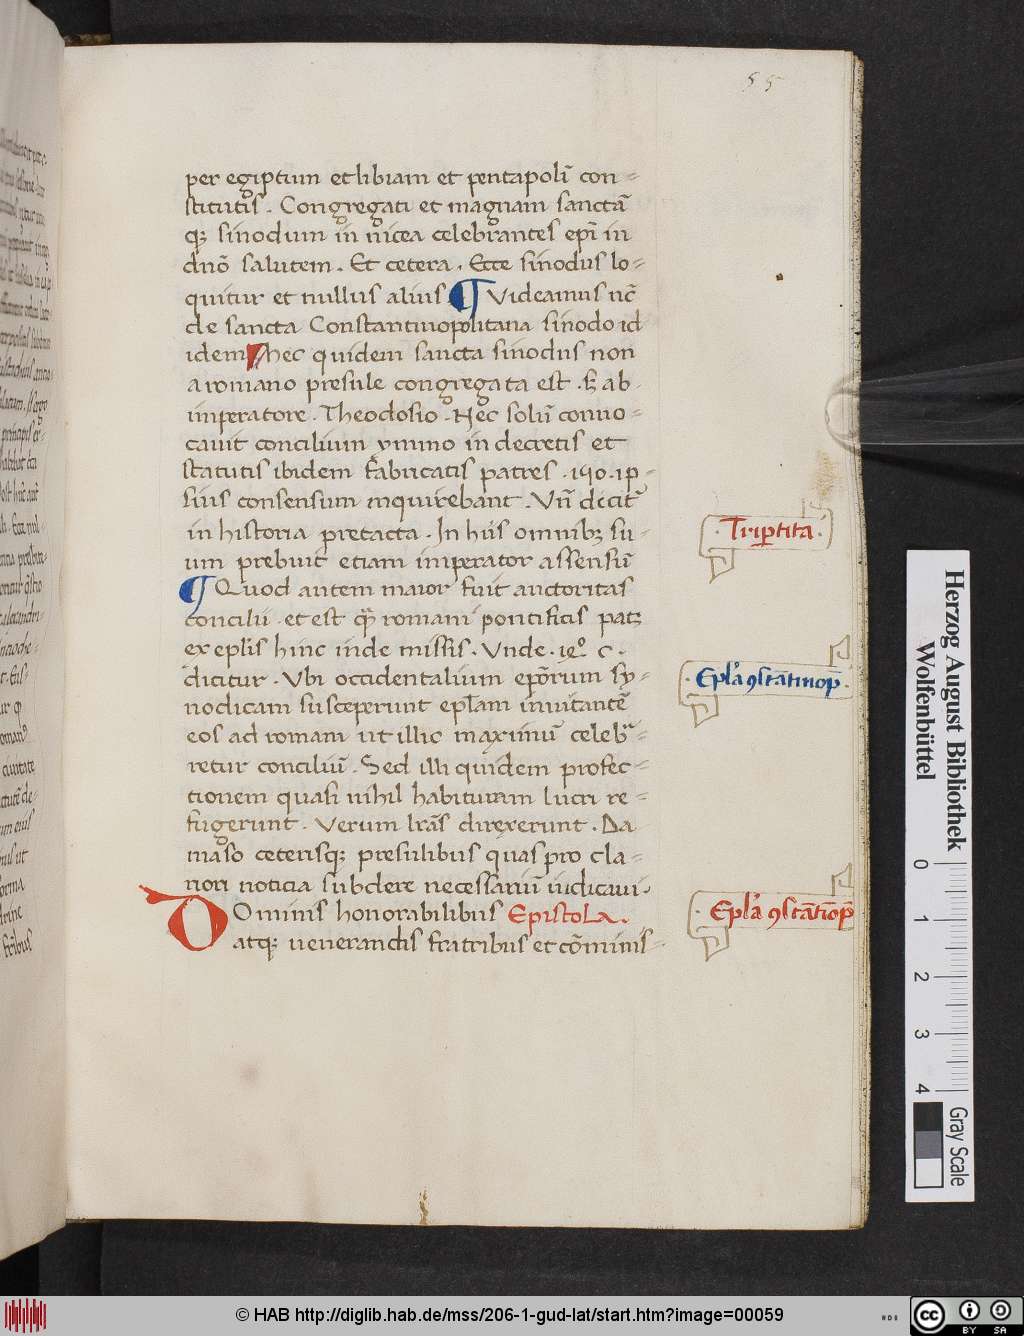 55
per egiptum et libiam et pentapolī con-
stitutis. Congregati et magnam sanctā
qꝫ sinodum in nicea celebrantes ep̄i in
dnō salutem. Et cetera. Ecce sinodus lo-
quitur et nullus alius ¶ Videamus nc̄
de sancta Constantinopolitana sinodo id
idem hec quidem sancta sinodus non
a romano presule congregata est. ab
imperatore. Theodosio. Nec solū conuo-
cauit concilium ymmo in decretis et
statutis ibidem fabricatis patres .150. ip-
sius consensum inquirebant. Vn̄ dicit᷑
in historia pretacta. In hiis omnibꝫ su-
um prebuit etiam imperator assensū
¶ Quod autem maior fuit auctoritas
concilii. et est romani pontificis patꝫ
ex ep̄lis hinc inde missis. Vnde. c.
dicitur. Vbi occidentalium ep̄orum sy-
nodicam susceperunt ep̄lam inuitantē
eos ad romam ut illic maximū celeb̄-
retur conciliū. Sed illi quidem profec-
tionem quasi nihil habituram lucri re-
fugerunt. Verum lrās direxerunt. Da
maso ceterisqꝫ presulibus quas pro cla-
riori noticia subdere necessariū iudicaui.
Dominis honorabilibus Epistola.
atqꝫ uenerandis fratribus et cōminis-
. Trip̱tita.
. Ep̄la ꝯstātinop̄.
. Ep̄la ꝯstātīop̄
Herzog August Bibliothek
Wolfenbüttel
0 1 2 3 4
Gray Scale
© HAB http://diglib.hab.de/mss/206-1-gud-lat/start.htm?image=00059
cc BY SA